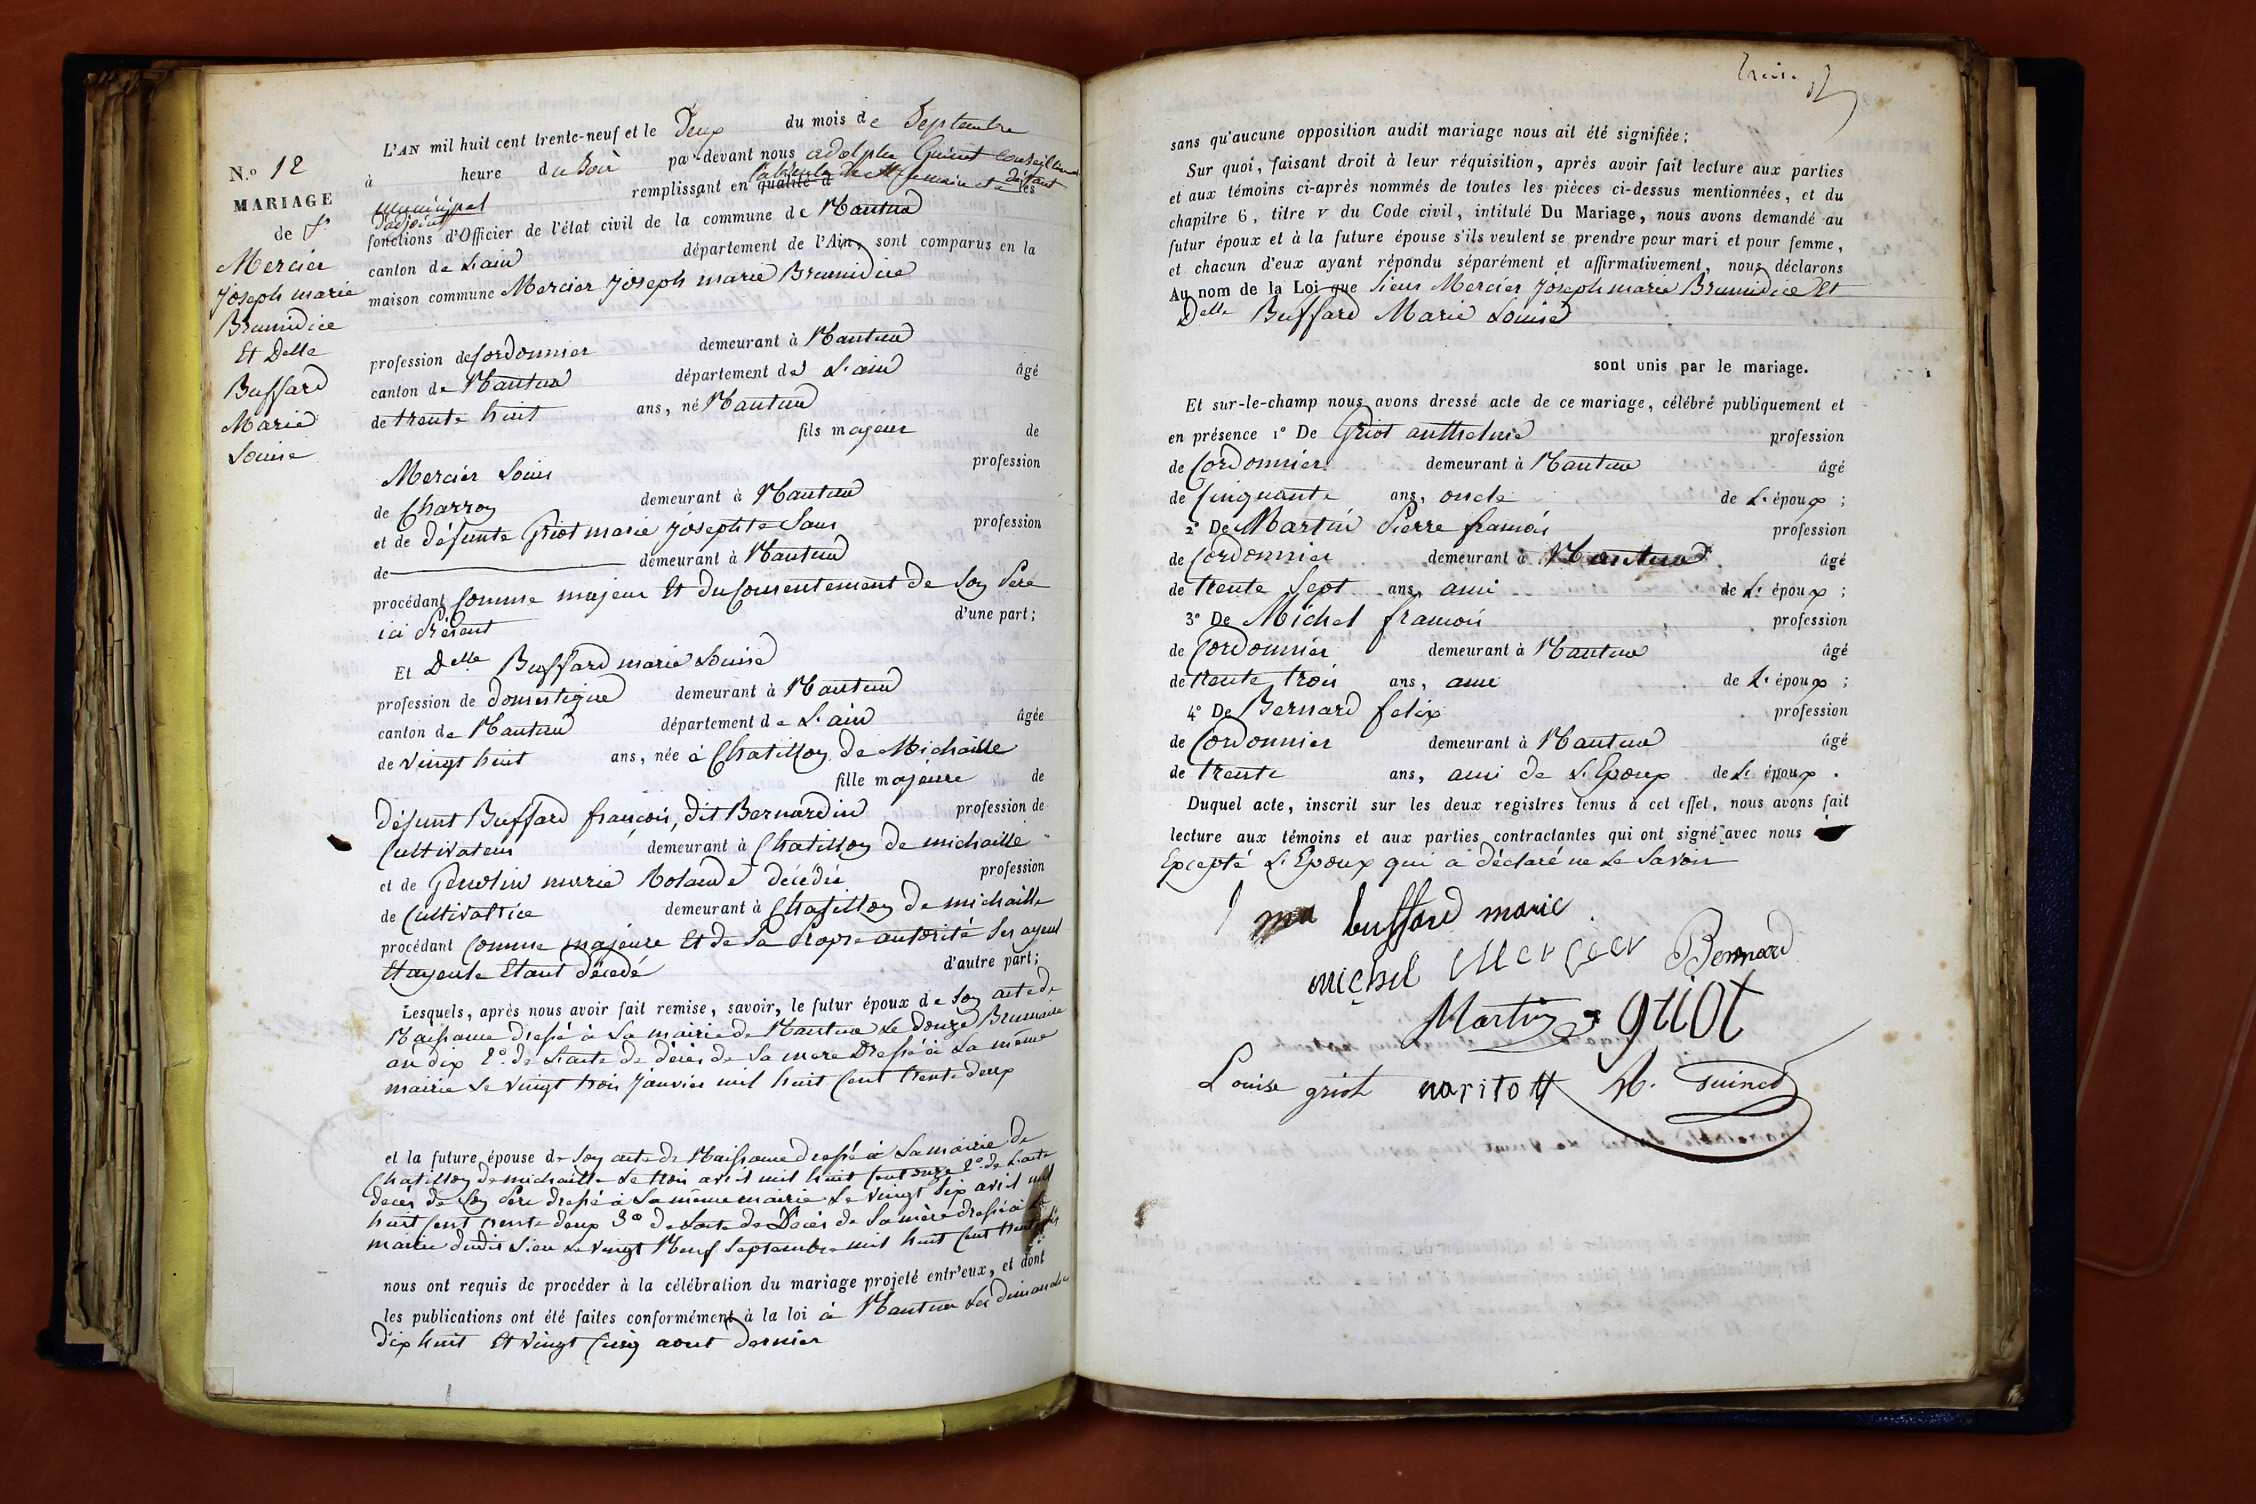 N.º 12
MARIAGE
de Sr
Mercier
Joseph marie
Brumidice
Et Delle
Buffard
Marie
Louise
L'AN mil huit cent trente-neuf et le Deux du mois de Septembre
à heure du Soir par-devant nous adolphe Guinet Conseiller
municipal remplissant en l'absence de Mr le maire et les
fonctions d'Officier de l'état civil de la commune de Nantua
canton de L'ain département de l'Ain, sont comparus en la
maison commune Mercier Joseph marie Brumidice
profession de Cordonnier demeurant à Nantua
canton de Nantua département de L'ain âgé
de trente huit ans, né Nantua
fils majeur de
Mercier Louis profession
de Charron demeurant à Nantua
et de défunte Griot marie Josephte Sans profession
de demeurant à Nantua
procédant Comme majeur Et du Consentement de Son Père
ici Présent d'une part;
Et Delle Buffard marie Louise
profession de domestique demeurant à Nantua
canton de Nantua département de L'ain âgée
de vingt huit ans, née à Chatillon de Michaille
fille majeure de
défunt Buffard françois, dit Bernardin profession de
Cultivateur demeurant à Chatillon de michaille
et de marie décédée profession
de Cultivatrice demeurant à Chatillon de michaille
procédant Comme majeure Et de Sa Propre autorité Ses ayeul
Et ayeule Etant décédé d'autre part;
Lesquels, après nous avoir fait remise, savoir, le futur époux de Son acte de
Naissance dressé à La mairie de Nantua Le douze Brumaire
an dix 2º de L'acte de décès de Sa mere Dressé à La même
mairie Le vingt trois Janvier mil huit Cent trente deux
et la future épouse de Son acte de Naissance dressé à La mairie de
Chatillon de michaille Le trois avril mil huit Cent onze 2º de L'acte
decès de Son Père dressé à La même mairie Le vingt Six avril mil
huit Cent trente deux 3º de L'acte de Décès de Sa mère dressé à La
mairie dudit Lieu Le vingt Neuf Septembre mil huit Cent
nous ont requis de procéder à la célébration du mariage projeté entr'eux, et dont
les publications ont été faites conformément à la loi à Nantua Les dimanches
dix huit Et vingt Cinq aout dernier
treize
sans qu'aucune opposition audit mariage nous ait été signifiée;
Sur quoi, faisant droit à leur réquisition, après avoir fait lecture aux parties
et aux témoins ci-après nommés de toutes les pièces ci-dessus mentionnées, et du
chapitre 6, titre v du Code civil, intitulé Du Mariage, nous avons demandé au
futur époux et à la future épouse s'ils veulent se prendre pour mari et pour femme,
et chacun d'eux ayant répondu séparément et affirmativement, nous déclarons
Au nom de la Loi que Sieur Mercier Joseph marie Brumidice Et
Delle Buffard Marie Louise
sont unis par le mariage.
Et sur-le-champ nous avons dressé acte de ce mariage, célébré publiquement et
en présence 1º De Griot anthelme profession
de Cordonnier demeurant à Nantua âgé
de Cinquante ans, oncle de L'époux;
2º De Martin Pierre francois profession
de Cordonnier demeurant à Nantua âgé
de trente Sept ans, ami de L'époux;
3º De Michel francois profession
de Cordonnier demeurant à Nantua âgé
de trente trois ans, ami de L'époux;
4º De Bernard felix profession
de Cordonnier demeurant à Nantua âgé
de trente ans, ami de L'Epoux de L'époux.
Duquel acte, inscrit sur les deux registres tenus à cet effet, nous avons fait
lecture aux témoins et aux parties contractantes qui ont signé avec nous
Excepté L'Epoux qui a déclaré ne Le Savoir
buffard marie
michel Mercier Bernard
Martin griot
Louise griot maritott Ad. Guinet